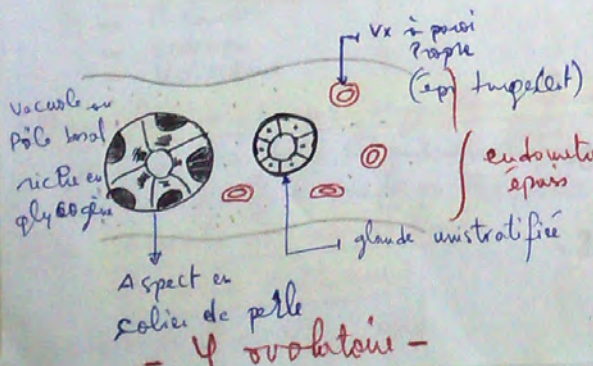 Vx à paroi
Propre
(épi) turgescent)
Vacuole au
Pôle basal
riche en
glycogène
endomètre
épais
glande unistratifiée
Aspect en
colier de perle
- φ ovulatoire -